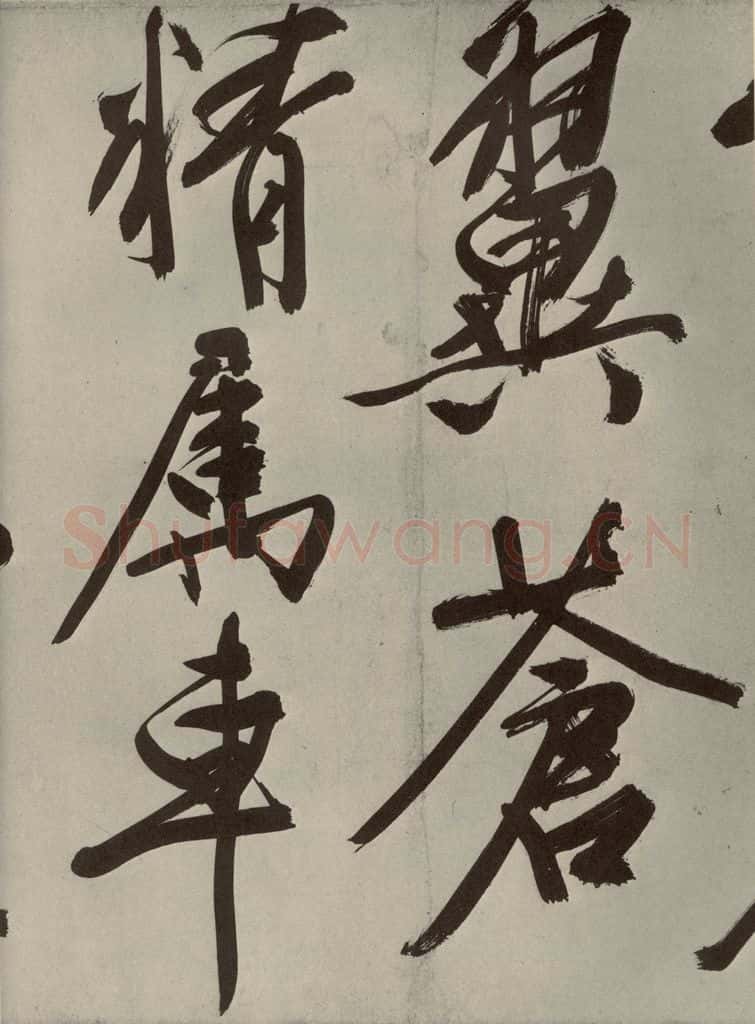 翼蒼
精属車
Shufawang.CN